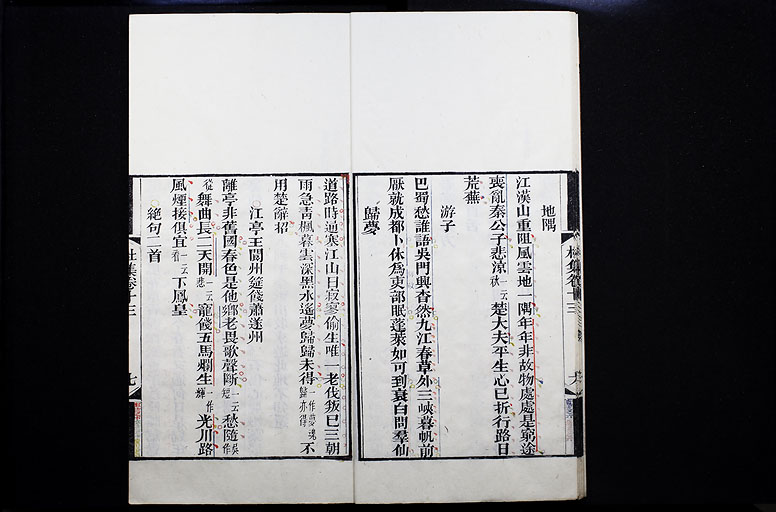 地隅
江漢山重阻風雲地一隅年年非故物處處是窮途
喪亂秦公子悲涼一云秋楚大夫平生心已折行路日
荒蕪
游子
巴蜀愁誰語吳門興杳然九江春草外三峽暮帆前
厭就成都卜休爲吏部眠蓬萊如可到衰白問羣仙
歸夢
杜集卷十三
道路時通塞江山日寂寥偷生唯一老伐叛已三朝
雨急青楓暮雲深黑水遙夢歸歸未得一作夢魂歸亦得不
用楚辭招
江亭王閬州筵餞蕭遂州
離亭非舊國春色是他鄉老畏歌聲斷一云短愁隨吳作
從舞曲長二天開一云悲寵餞五馬爛生一作輝光川路
風煙接俱宜一云看下鳳皇
絕句二首
杜集卷十三
七